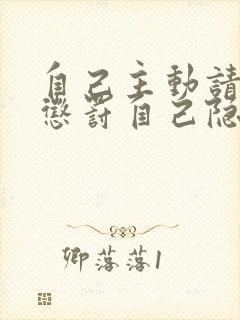 自己主動請
懲罰自己隐
卿落落1